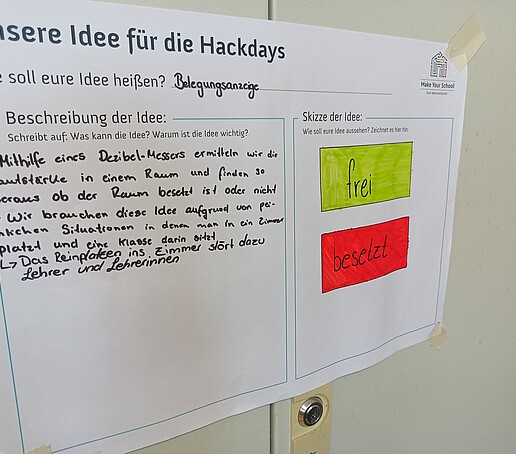 nsere Idee für die Hackdays
e soll eure Idee heißen? Belegungsanzeige
Make Your School
Beschreibung der Idee:
Schreibt auf: Was kann die Idee? Warum ist die Idee wichtig?
Mithilfe eines Dezibel-Messers ermitteln wir die
autstärke in einem Raum und finden so
heraus ob der Raum besetzt ist oder nicht
Wir brauchen diese Idee aufgrund von pei-
nlichen Situationen in denen man in ein Zimmer
platzt und eine Klasse darin sitzt
↳ Das Reinplatzen ins Zimmer stört dazu
Lehrer und Lehrerinnen
Skizze der Idee:
Wie soll eure Idee aussehen? Zeichnet es hier hin.
frei
besetzt